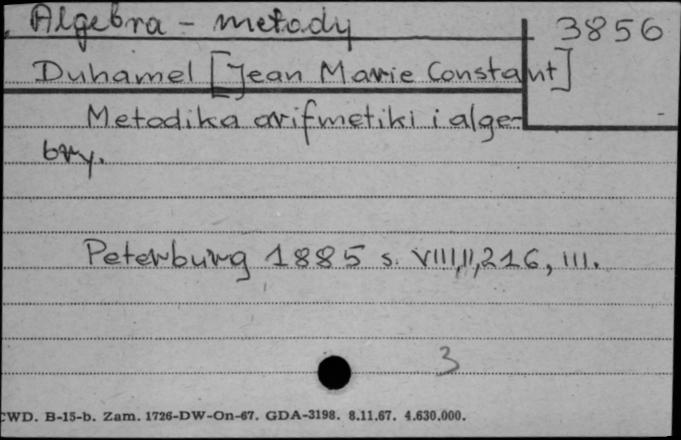 Algebra - metody
3856
Duhamel [Jean Marie Constant]
Metodika arifmetiki i alge-
bry.
Peterburg 1885 s. VIII, II, 216, III.
3
CWD. B-15-b. Zam. 1726-DW-On-67. GDA-3198. 8.11.67. 4.630.000.